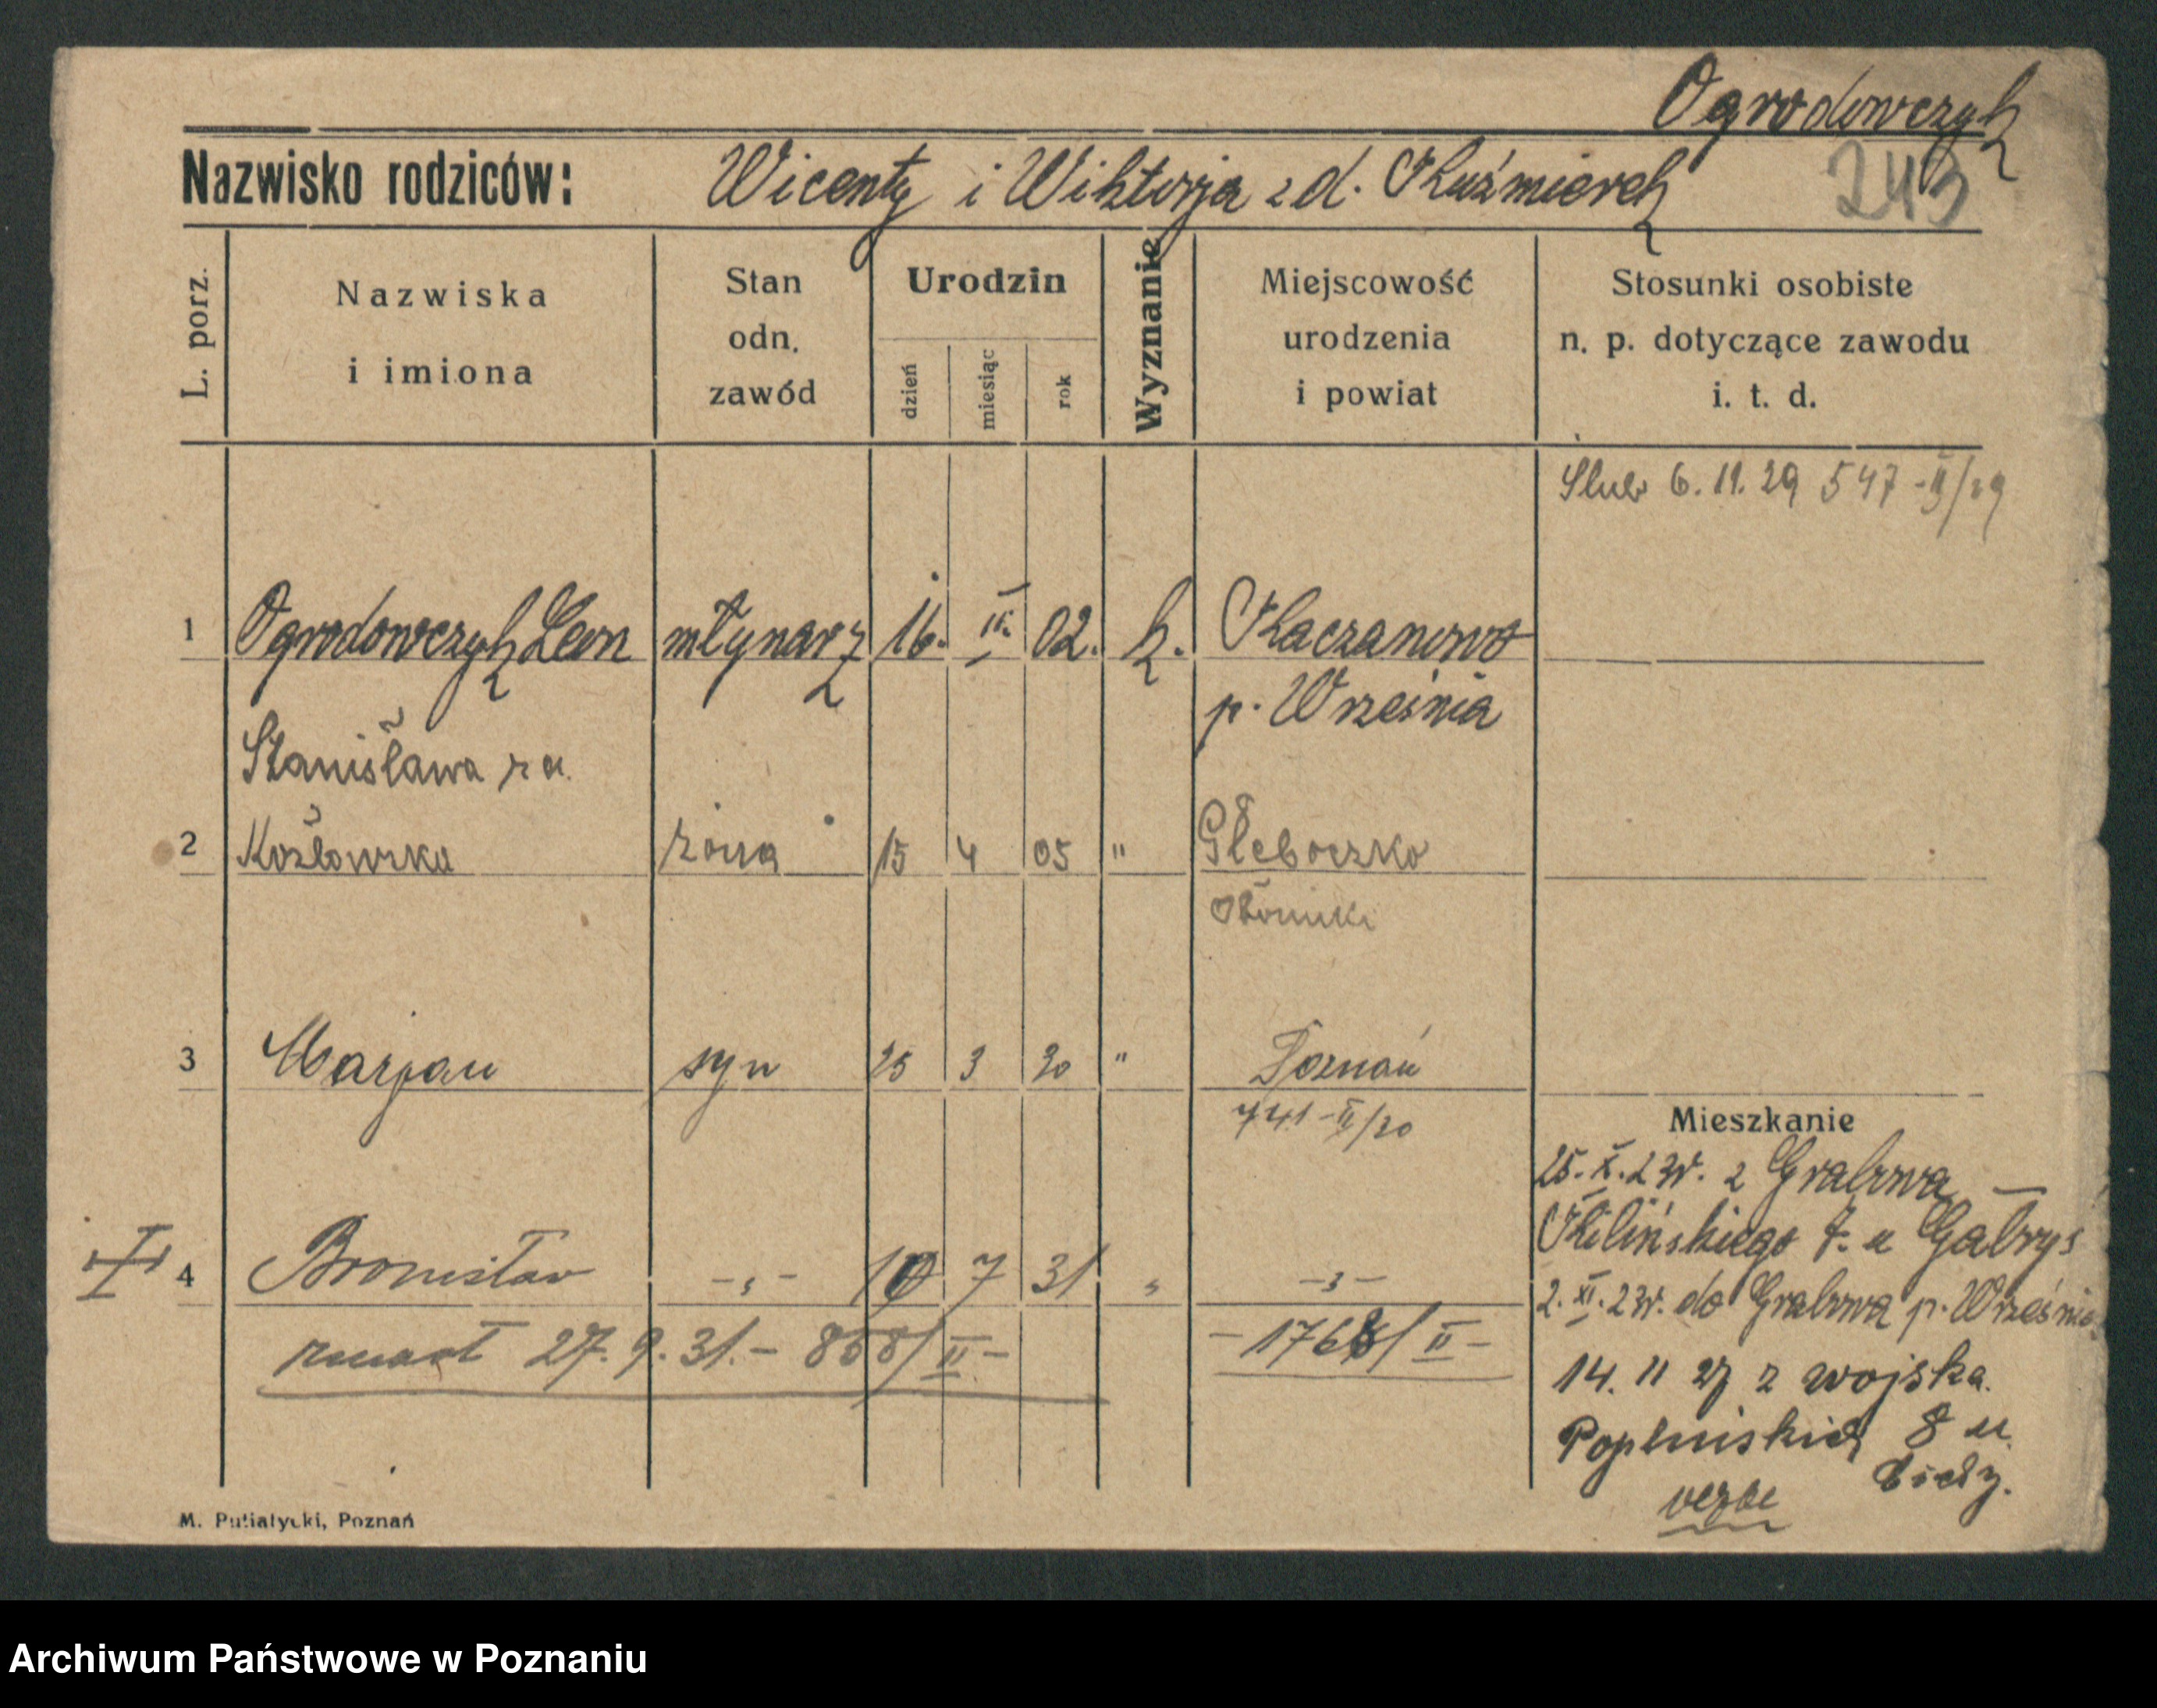 Ogrodowczyk
243
Nazwisko rodziców: Wicenty i Wiktorja z d. Kuźmierek
L. porz. Nazwiska i imiona Stan odn. zawód Urodzin dzień miesiąc rok Wyznanie Miejscowość urodzenia i powiat Stosunki osobiste n. p. dotyczące zawodu i. t. d.
Slub 6. 11. 29 547 - II/29
1 Ogrodowczyk Leon młynarz 16. 02. k. Kaczanowo
p. Września
Stanisława z d.
2 Kozłowska żona 15 4 05 " Głeboczko
Oborniki
3 Marjan syn 25 3 30 " Poznań
741 - II/30
Mieszkanie
25. X. 23r. z Grabowa
Kilińskiego 7. u Gabrys
4 Bronisław - " - 10 7 31 " - " -
2. XI. 23r. do Grabowa p. Września
zmarł 27. 9. 31. - 868/II - - 1768/II -
14. 11 27 z wojska.
Poplińskich 8 u
M. Putiatycki, Poznań